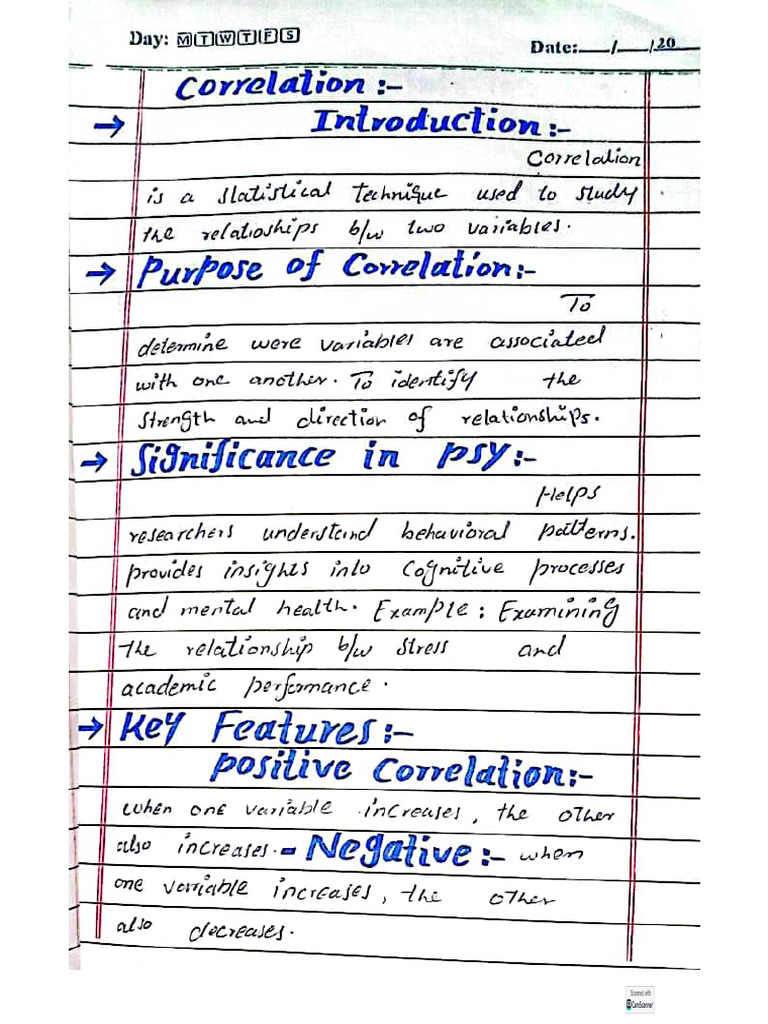 Day: M T W T F S
Date:___/___/20___
Correlation :-
→ Introduction :-
Correlation
is a statistical technique used to study
the relatioships b/w two variables.
→ Purpose of Correlation :-
To
determine were variables are associated
with one another. To identify the
strength and direction of relationships.
→ Significance in psy :-
Helps
researchers understand behavioral patterns.
provides insights into Cognitive processes
and mental health. Example : Examining
the relationship b/w stress and
academic performance.
→ Key Features :-
positive Correlation :-
when one variable increases, the other
also increases. - Negative :- when
one variable increases, the other
also decreases.
Scanned with
CamScanner